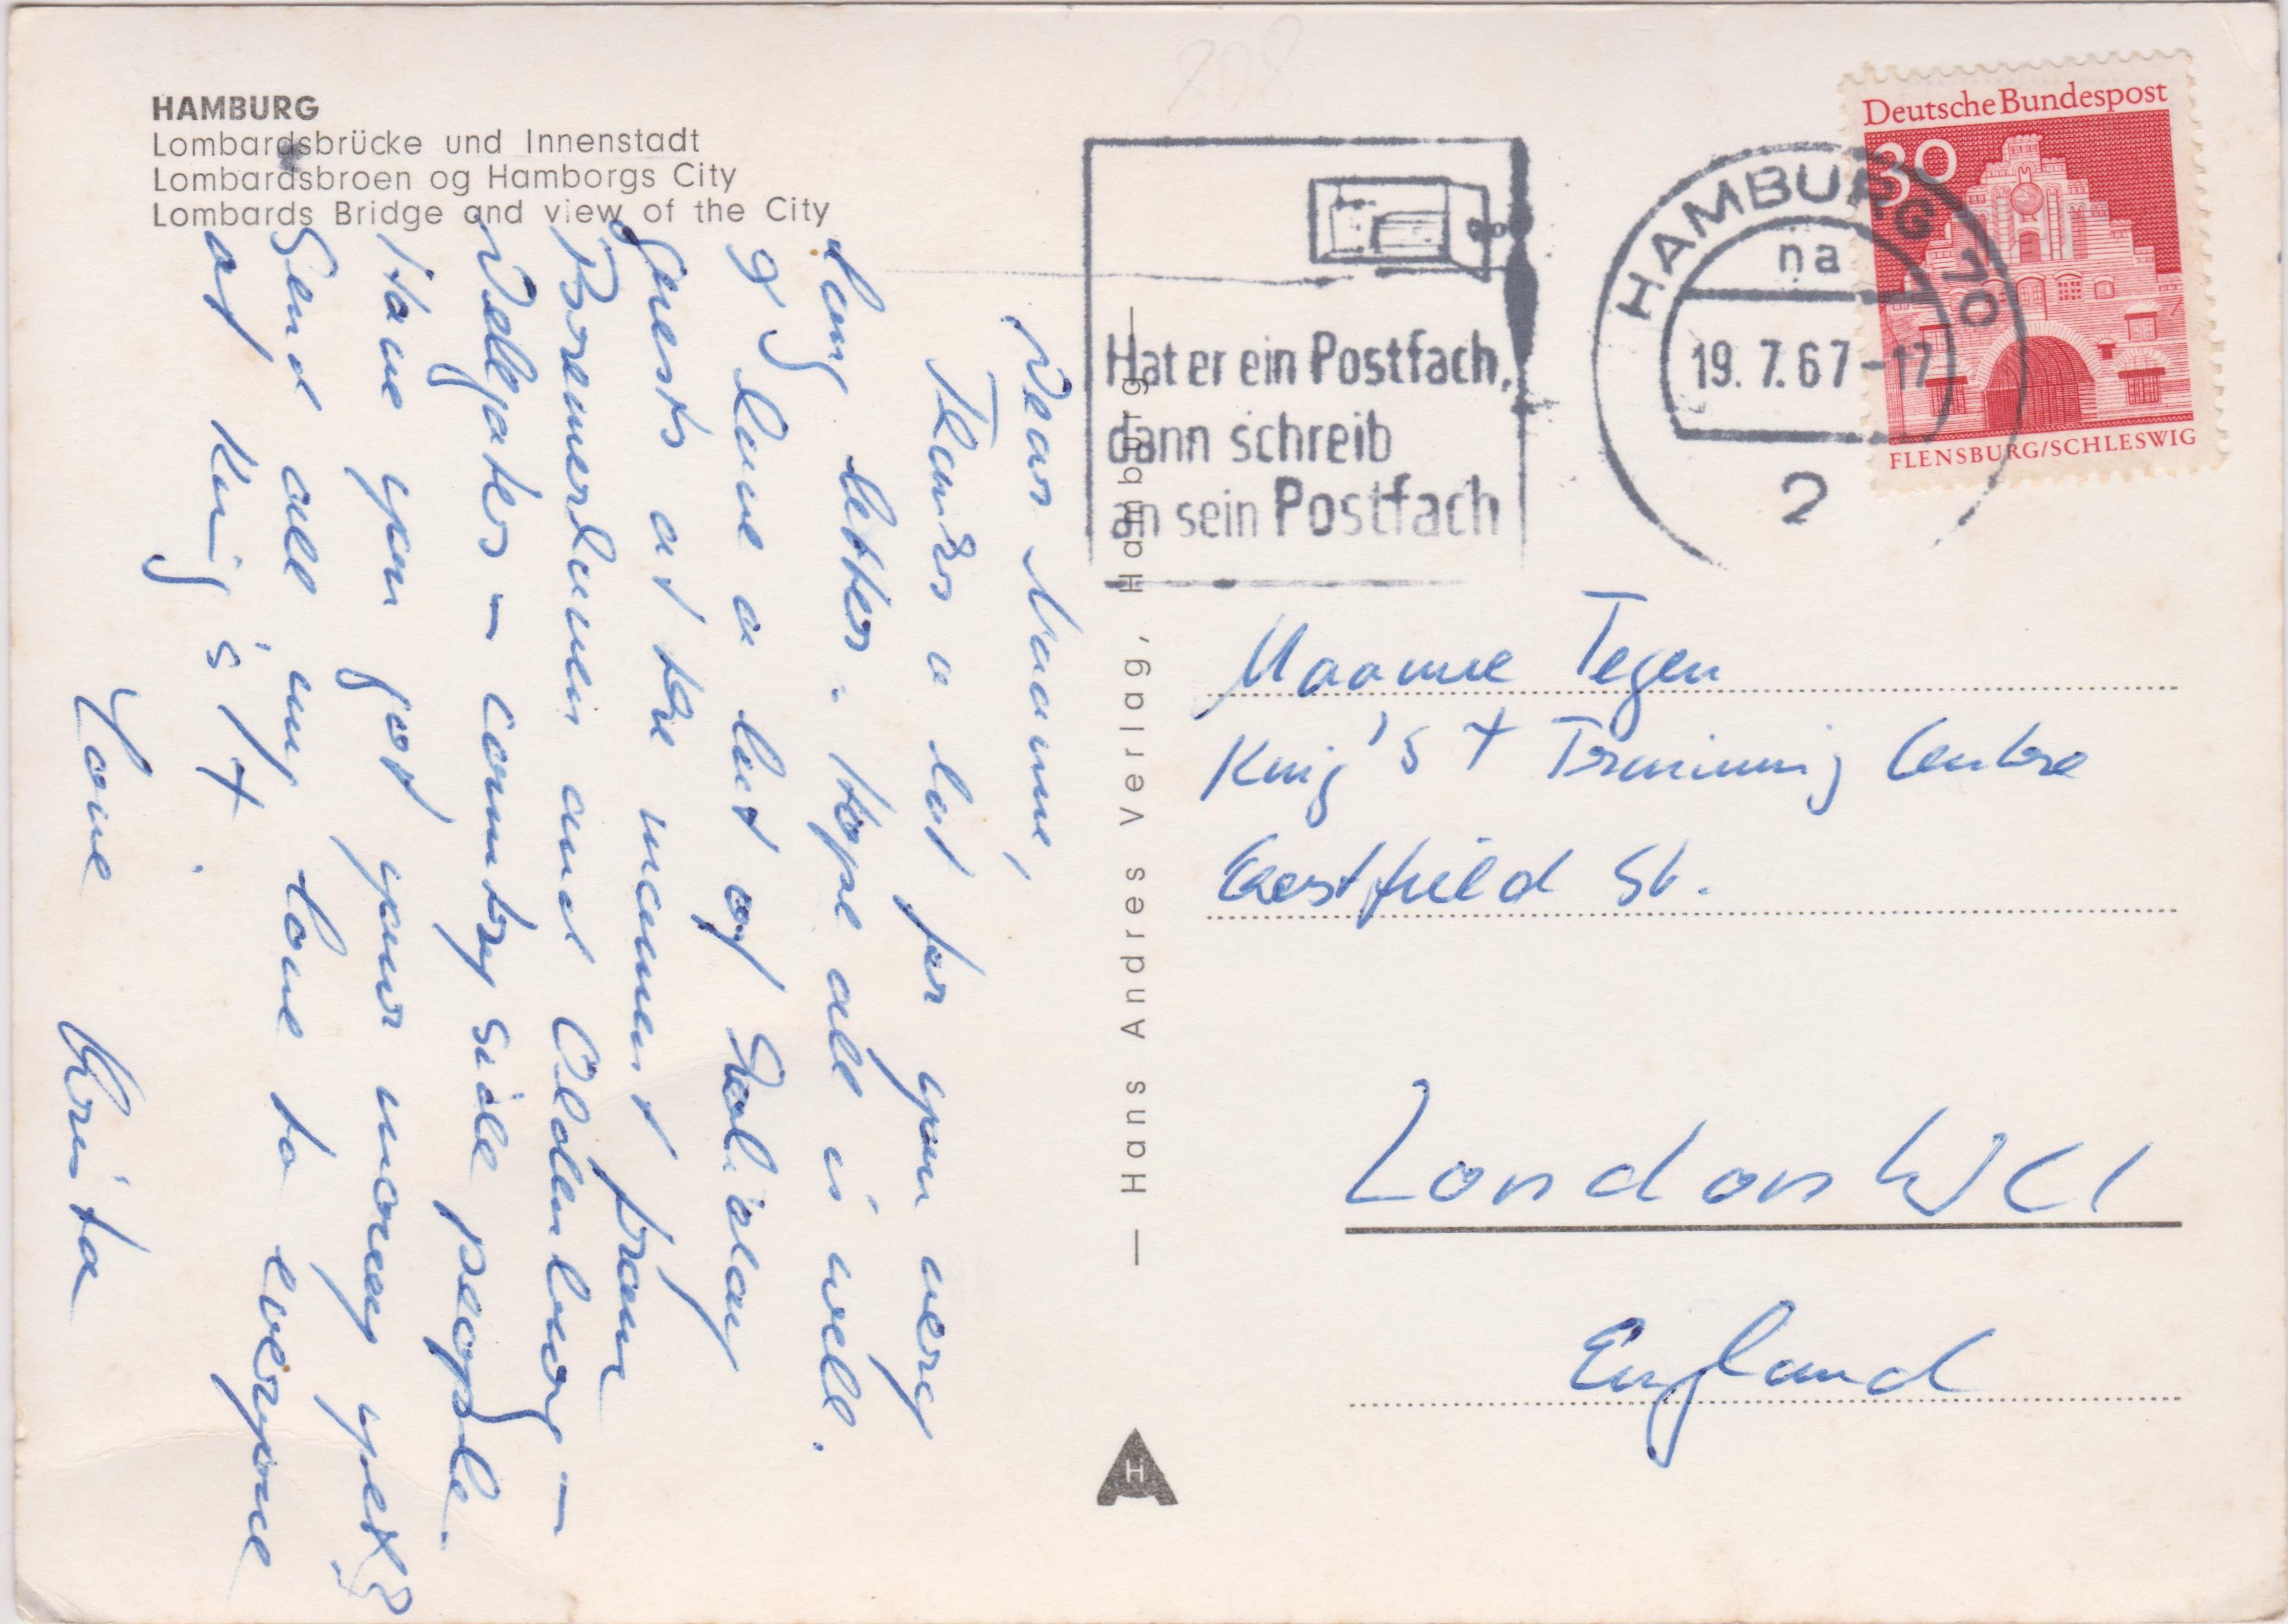 HAMBURG
Lombardsbrücke und Innenstadt
Lombardsbroen og Hamborgs City
Lombards Bridge and view of the City
Dear Maamie,
Thanks a lot for your very
long letter. Hope all is well.
I have a lot of
guests at the moment from
and Oldenburg –
Delegates – country side people.
Have you got your money yet?
Send all my love to everyone
at King's X.
Love Krista
— Hans Andres Verlag, Hamburg —
H
Hat er ein Postfach,
dann schreib
an sein Postfach
HAMBURG 70
na
19.7.67-17
2
Deutsche Bundespost
30
FLENSBURG/SCHLESWIG
Maamie Tegen
King's X Training Centre
St.
London WC1
England